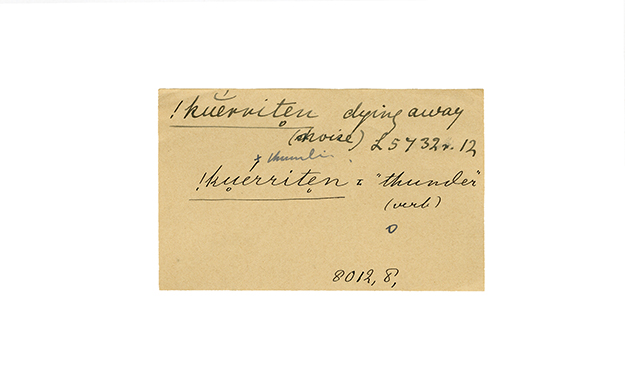 !kuĕrrite̥n dying away
(noise) L 5732r.12
!ku̥e̥rrite̥n = "thunder"
(verb)
o
8012, 8,